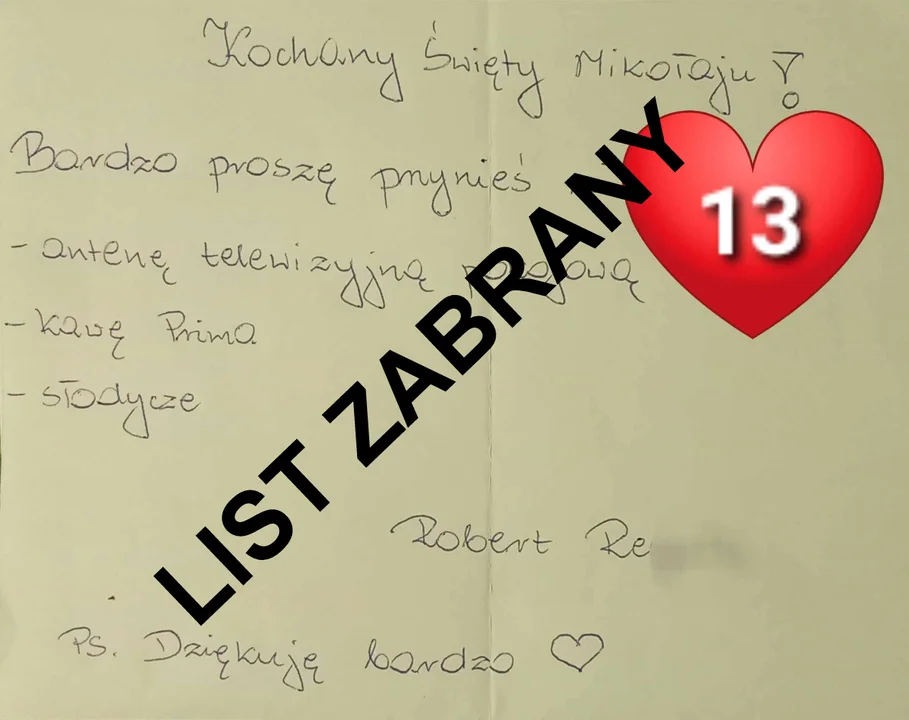 Kochany Święty Mikołaju!
Bardzo proszę przynieś
- antenę telewizyjną pokojową
- kawę Prima
- słodycze
Robert Re
Ps. Dziękuję bardzo ♡
LIST ZABRANY
13